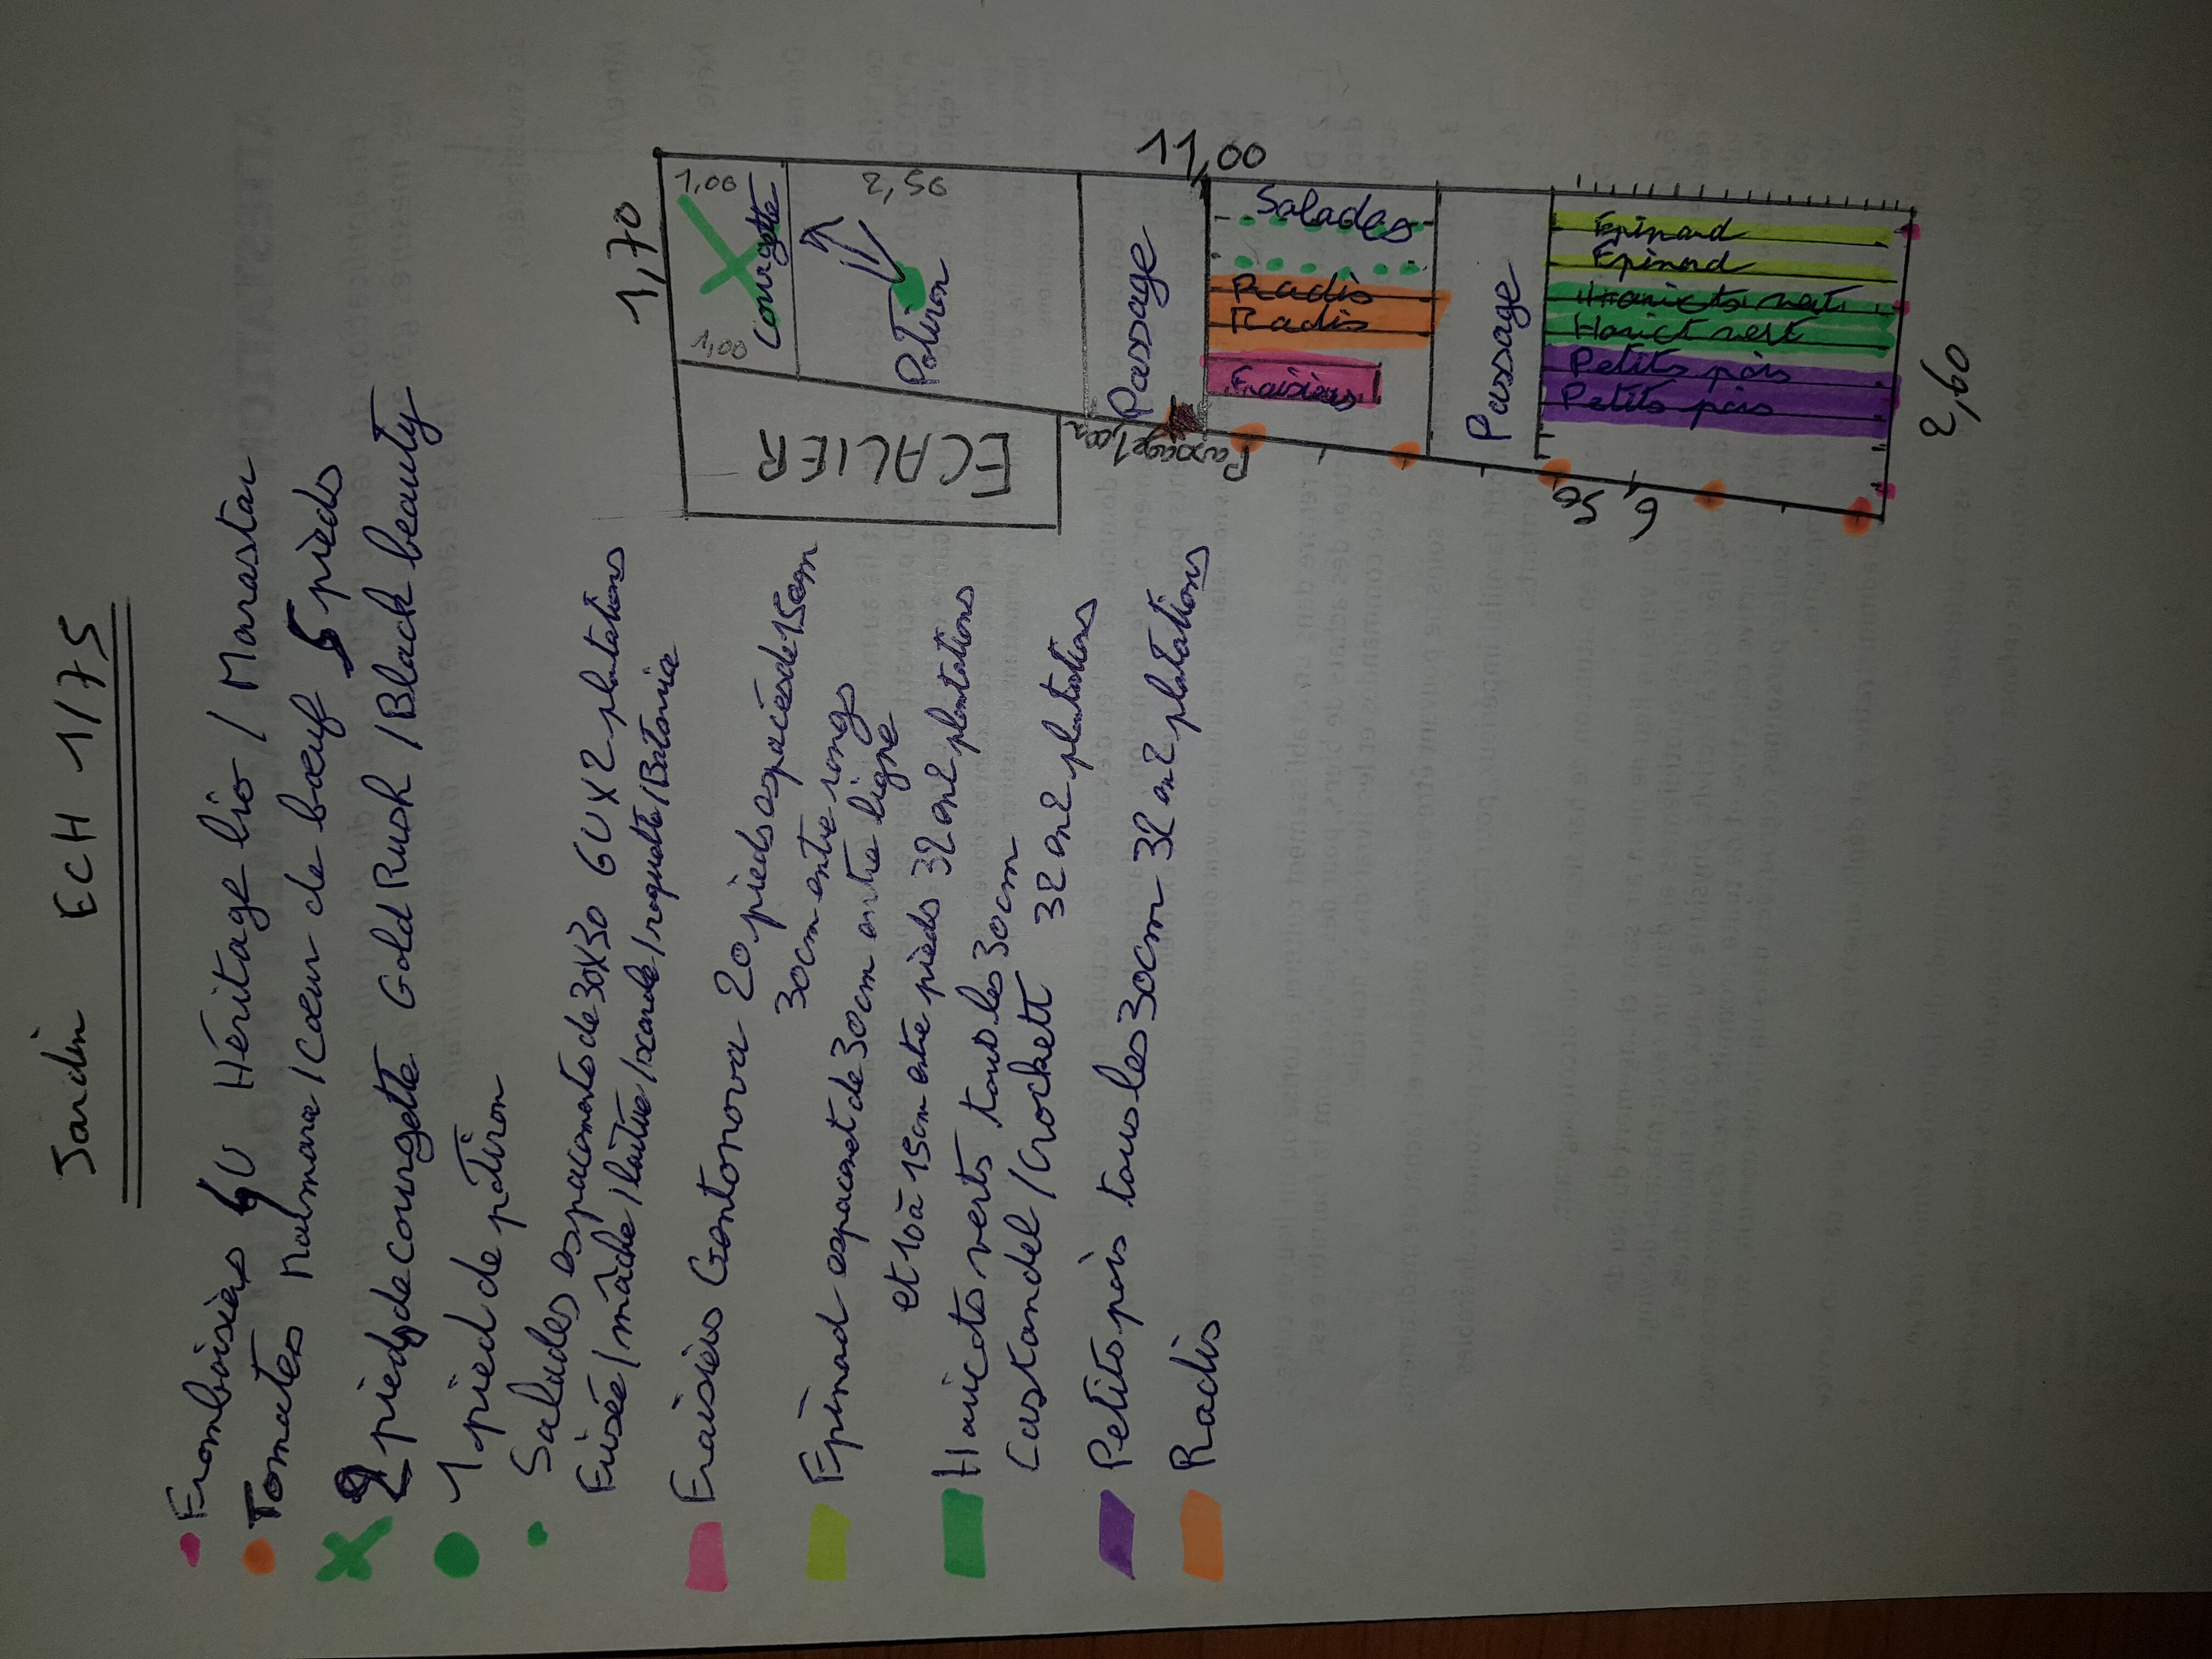 Jardin ECH 1/75
Framboisiers 4U Héritage bio / Marastar
Tomates Malmara / Cœur de bœuf 5 pieds
2 pieds de courgette Gold Rush / Black beauty
1 pied de potiron
Salades espacements de 30x30 6U x 2 plantations
Frisée / mâche / laitue / scarole / roquette / Batavia
Fraisiers Gantonova 20 pieds espacés de 15cm
30cm entre rangs
Epinard espacent de 30cm entre ligne
et 10 à 15cm entre pieds 32 en 2 plantations
Haricots verts tous les 30cm
Castandel / Crockett 32 en 2 plantations
Petits pois tous les 30cm 32 en 2 plantations
Radis
1,70
11,00
1,00
1,00
Courgette
2,50
Potiron
ECALIER
Passage
Passage 1,00
Salades
Radis
Radis
Fraisiers
Passage
Epinard
Epinard
Haricots vert
Harict vert
Petits pois
Petits pois
6,50
2,60